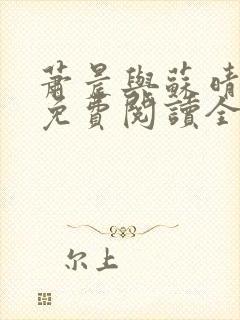 蕭晨與蘇晴
免費閱讀全
尔上